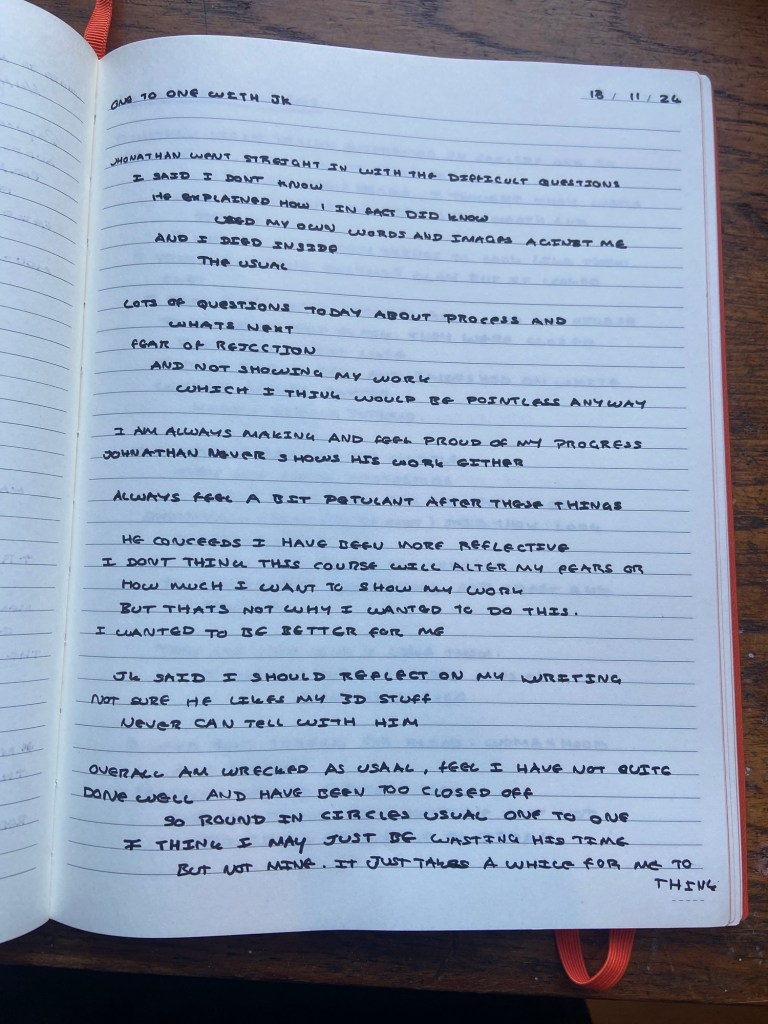 ONE TO ONE WITH JK
18 / 11 / 24
JHONATHAN WENT STREIGHT IN WITH THE DIFFICULT QUESTIONS
I SAID I DONT KNOW
HE EXPLAINED HOW I IN FACT DID KNOW
USED MY OWN WORDS AND IMAGES AGINST ME
AND I DIED INSIDE
THE USUAL
LOTS OF QUESTIONS TODAY ABOUT PROCESS AND
WHATS NEXT
FEAR OF REJECTION
AND NOT SHOWING MY WORK
WHICH I THING WOULD BE POINTLESS ANYWAY
I AM ALWAYS MAKING AND FEEL PROUD OF MY PROGRESS
JOHNATHAN NEVER SHOWS HIS WORK EITHER
ALWAYS FEEL A BIT PETULANT AFTER THESE THINGS
HE CONCEEDS I HAVE BEEN MORE REFLECTIVE
I DONT THING THIS COURSE WILL ALTER MY FEARS OR
HOW MUCH I WANT TO SHOW MY WORK
BUT THATS NOT WHY I WANTED TO DO THIS.
I WANTED TO BE BETTER FOR ME
JK SAID I SHOULD REFLECT ON MY WRITING
NOT SURE HE LIKES MY 3D STUFF
NEVER CAN TELL WITH HIM
OVERALL AM WRECKED AS USAAL, FEEL I HAVE NOT QUITE
DONE WELL AND HAVE BEEN TOO CLOSED OFF
SO ROUND IN CIRCLES USUAL ONE TO ONE
I THINK I MAY JUST BE WASTING HIS TIME
BUT NOT MINE. IT JUST TAKES A WHILE FOR ME TO
THING